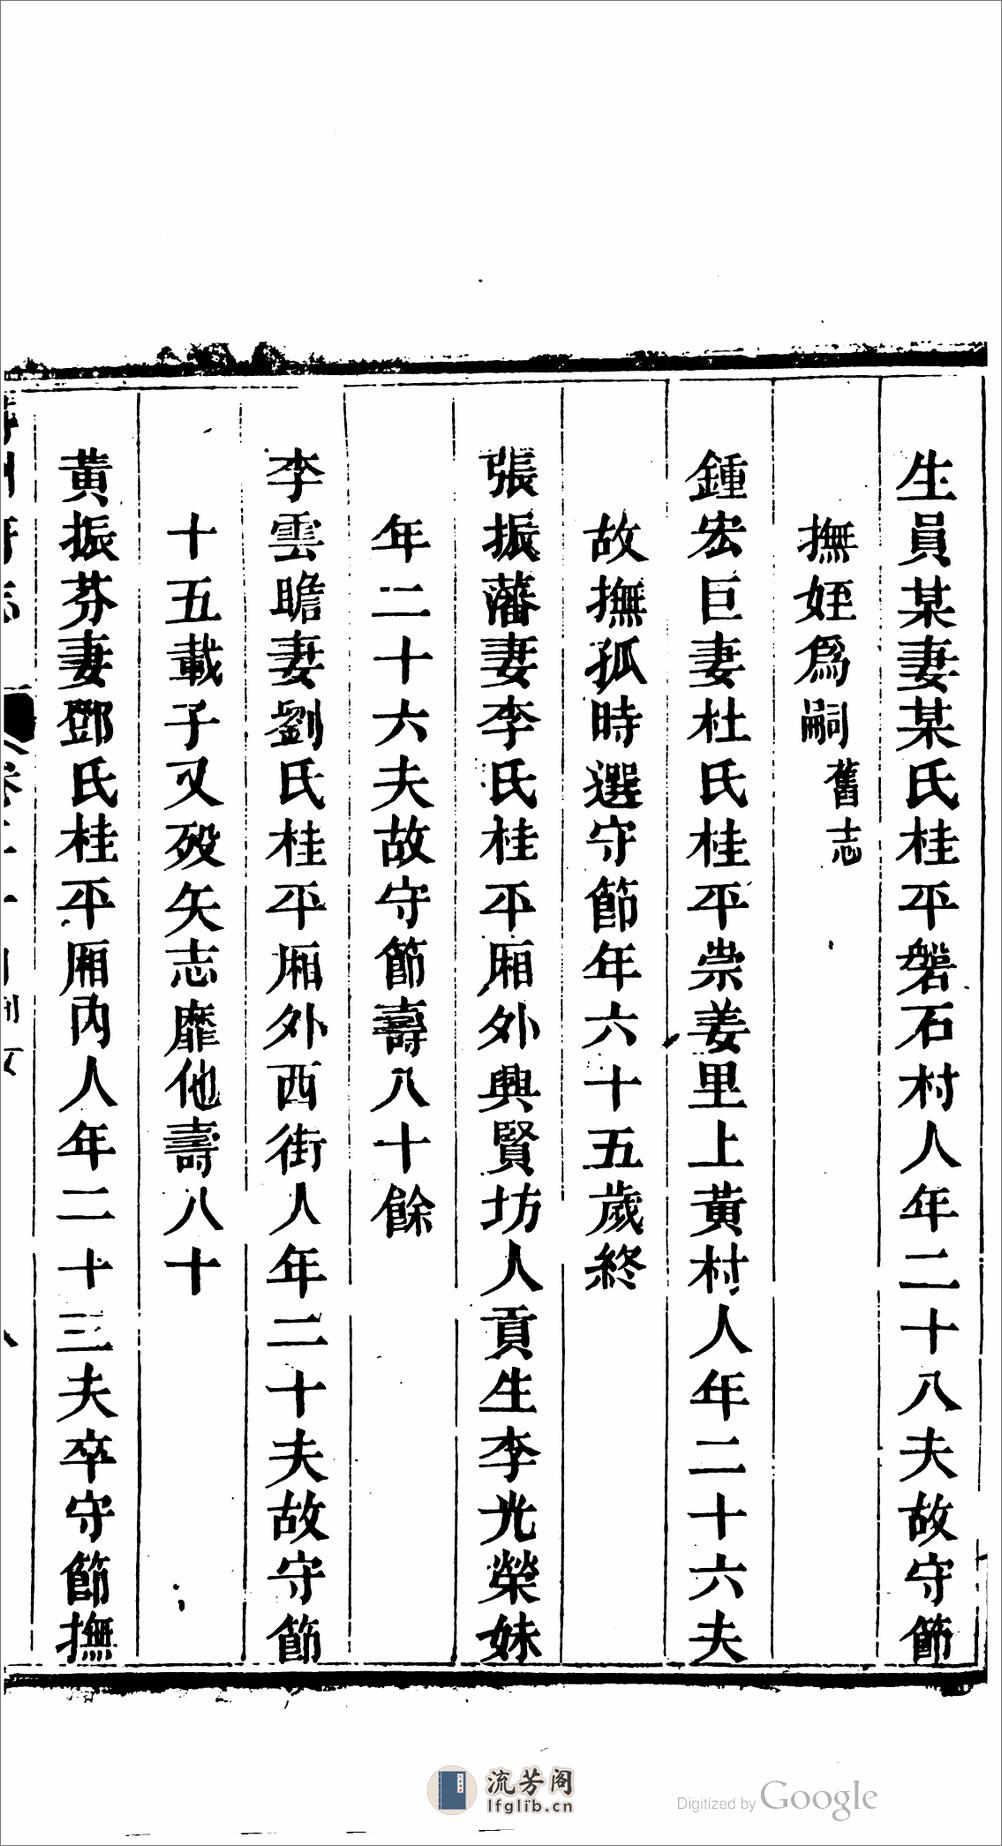 生員某妻某氏桂平磐石村人年二十八夫故守節
撫姪爲嗣舊志
鍾宏巨妻杜氏桂平崇姜里上黃村人年二十六夫
故撫孤時選守節年六十五歲終
張振藩妻李氏桂平廂外興賢坊人貢生李光榮妹
年二十六夫故守節壽八十餘
李雲瞻妻劉氏桂平廂外西街人年二十夫故守節
十五載子又歿矢志靡他壽八十
黃振芬妻鄧氏桂平廂內人年二十三夫卒守節撫
流芳阁
lfglib.cn
Digitized by Google